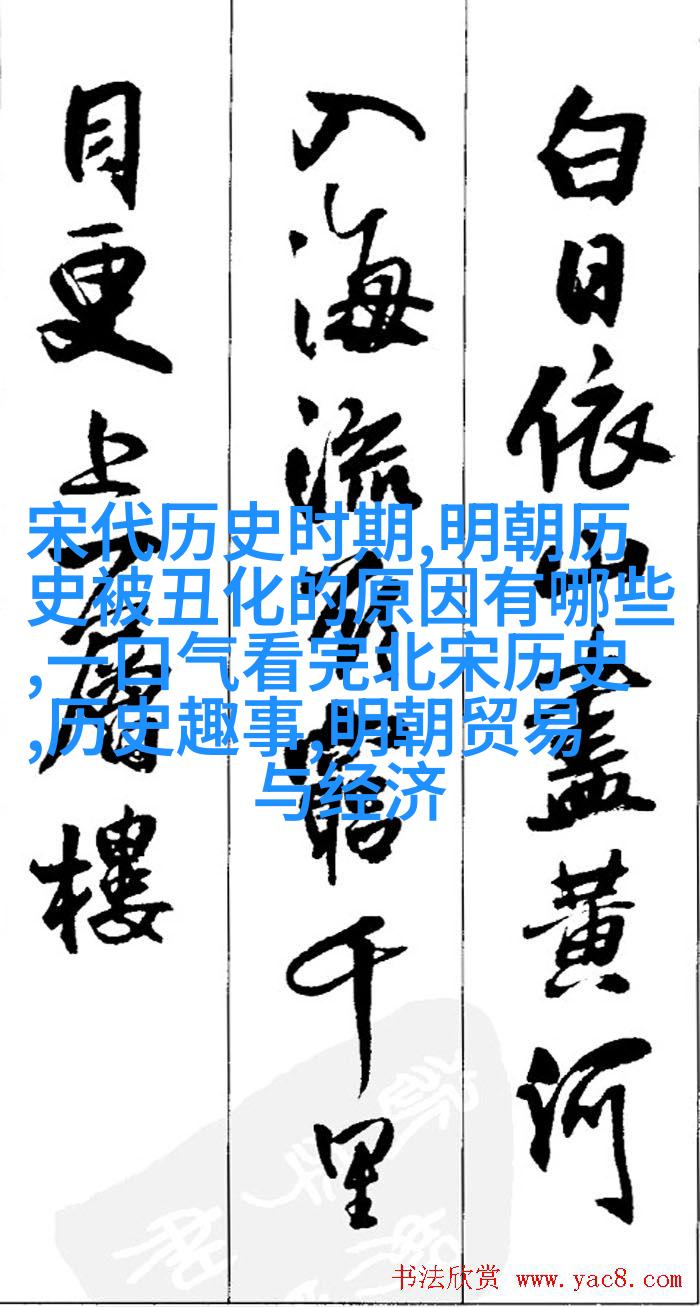 白日依山盡黄河
入海流欲窮千里
目更上一層樓
宋代历史时期,明朝历
史被丑化的原因有哪些
,一口气看完北宋历史
,历史趣事,明朝贸易
与经济
书法欣赏 www.yac8.com